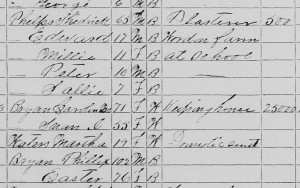 — George 6 M B
Phillips Fredrick 63 M B Plasterer 500
— Edward 17 M B Work on farm
— Willie 11 F B at School
— Peter 10 M B —
— Sallie 7 F B
Bryan 71 F W Keeping house 25000
— 33 F W
Waters Martha 19 F W Domestic
Bryan Phillip 102 M B
— Easter 76 F B